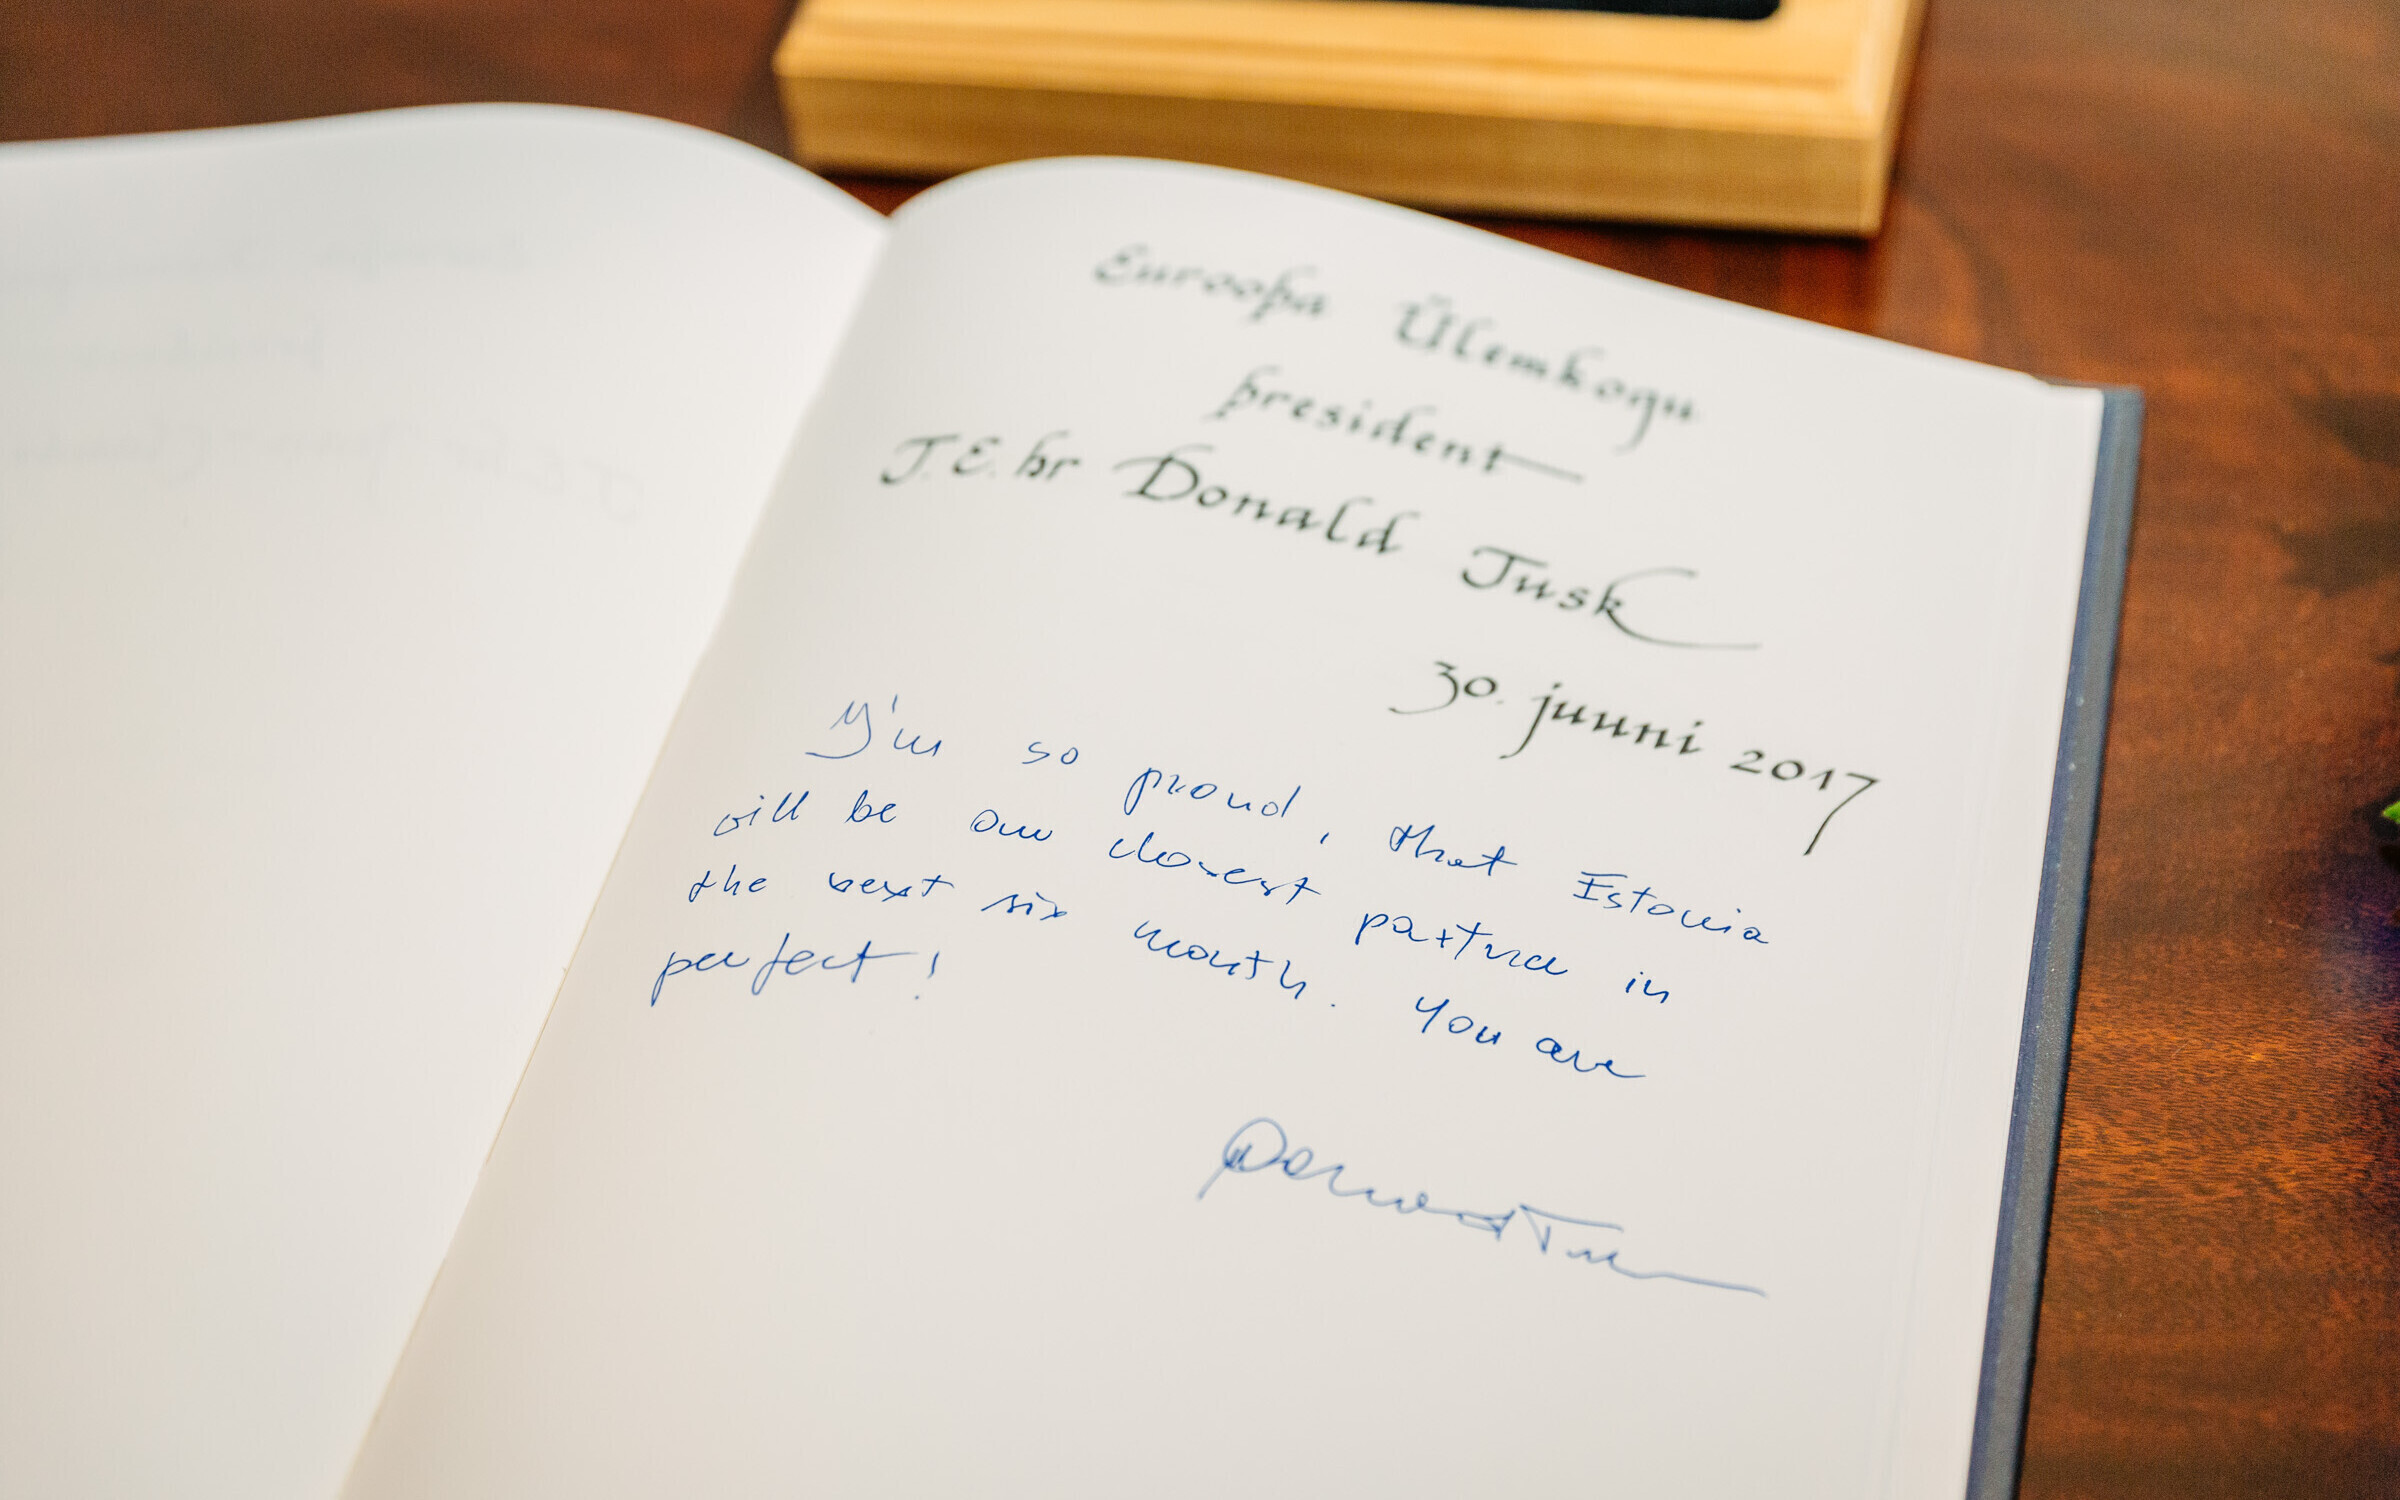 Euroopa Ülemkogu
president
T.E. hr Donald Tusk
30. juuni 2017
I'm so proud, that Estonia
will be our closest partner in
the next six month. You are
perfect!
Donald Tusk